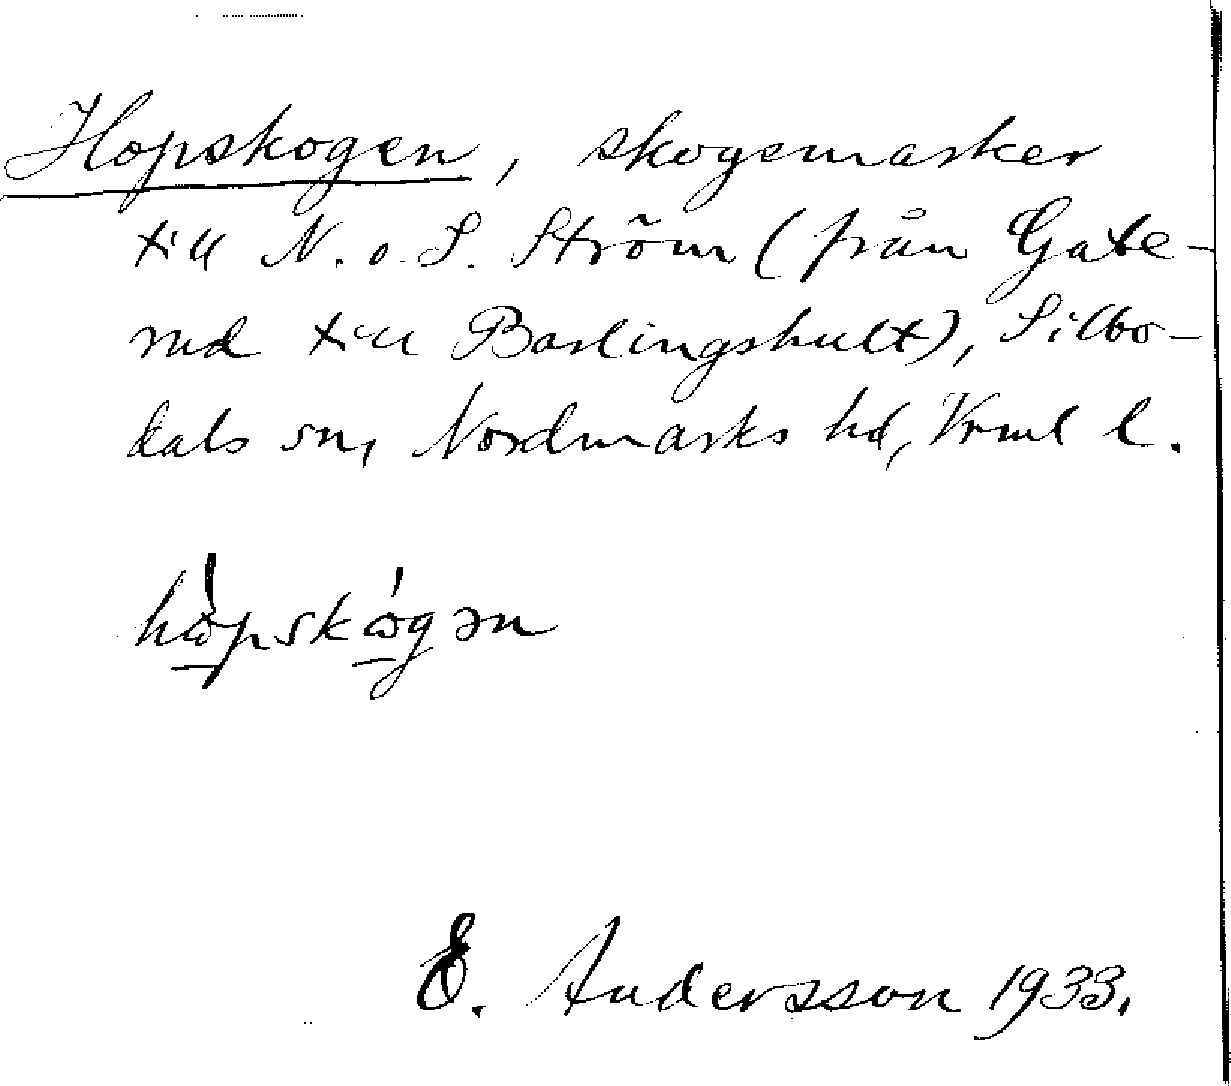 Hopskogen, skogemarker
till N. o. S. Ström (från Gate-
rud till Barlingshult), Silbo-
dals sn, Nordmarks hd, Vrml l.
E. Andersson 1933.